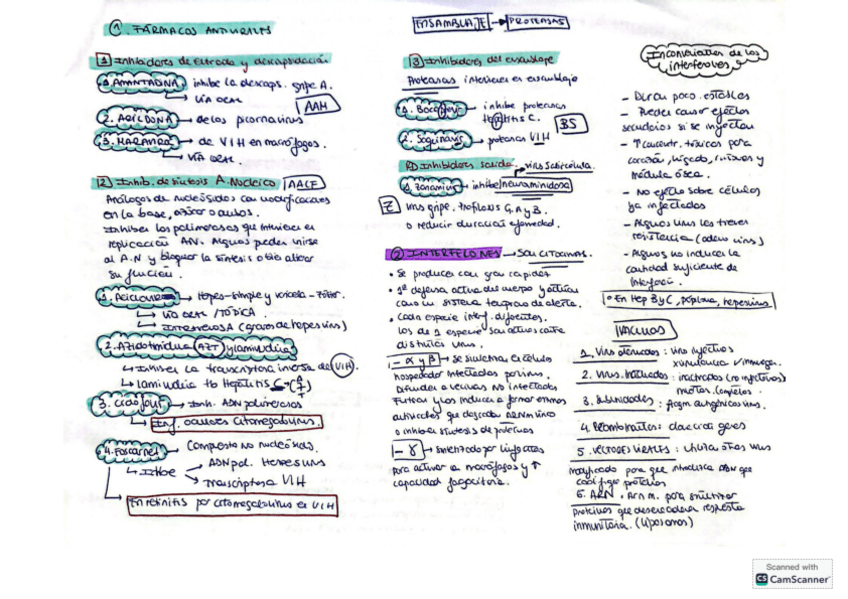 ① FÁRMACOS ANTIVIRALES
1 Inhibidores de entrada y descapsidación
1. AMANTADINA inhibe la descaps. gripe A.
VÍA ORAL
AAM
2. de los picornavirus
3. de VIH en macrófagos.
VÍA ORAL
2 Inhib. de síntesis A. Nucleico
Análogos de nucleósidos con modificaciones
en la base, azúcar o ambos.
Inhiben las polimerasas que intervienen en
replicación AN. Algunos pueden unirse
al A.N y bloquear la síntesis o bien alterar
su función.
1. Aciclovir Herpes-simple y varicela-Zóster.
VÍA ORAL / TÓPICA
INTRAVENOSA (graves de herpesvirus)
2. Azidotimidina (AZT) y lamivudina
Inhiben la transcriptasa inversa de VIH
lamivudina tb Hepatitis
3. Cidofovir Inh. ADN polimerasas
Inf. oculares citomegalovirus.
4. Foscarnet Compuesto no nucleósido.
Inhibe
ADN pol. Herpesvirus
Transcriptasa VIH
En retinitis por citomegalovirus en VIH
ENSAMBLAJE → PROTEASAS
3 Inhibidores del ensamblaje
Proteasas intervienen en ensamblaje
1. inhibe proteasas
Hepatitis C.
BS
2. Saquinavir proteasas VIH
4 Inhibidores salida virus
1. Zanamivir inhibe neuraminidasa
Z
virus gripe. Profilaxis G. A y B.
o reducir duración enfermedad.
② INTERFERONES → Son CITOCINAS.
• Se producen con gran rapidez
• 1ª defensa activa del cuerpo y actúan
como un sistema temprano de alerta.
• Cada especie interf. diferentes.
los de 1 especie son activos contra
distintos virus.
I - α y β → se sintetizan en células
hospedador infectadas por virus.
Difunden a vecinas no infectadas
y las inducen a formar enzimas
antivirales que degradan ARNm vírico
o inhiben síntesis de proteínas
I - γ → sintetizado por linfocitos
para activar a macrófagos y ↑
capacidad fagocitaria.
Inconvenientes de los
interferones
- Duran poco. estables
- Pueden causar efectos
secundarios si se inyectan
- ↑ concentr. tóxicos para
corazón, hígado, riñones y
médula ósea.
- No efecto sobre células
ya infectadas
- Algunos virus les tienen
resistencia (adenovirus)
- Algunos no inducen la
cantidad suficiente de
interferón.
• En Hep B y C, papiloma, herpesvirus
VACUNAS
1. Virus atenuados: virus infectivos
virulencia
2. Virus inactivados: inactivados (no infectivos)
completos.
3. Subunidades: fragm antigénicos virus.
4. Recombinantes:
5. VECTORES VIRALES: otros virus
modificado para que introduzca ADN que
codifique proteínas
6. ARN. ARN m. para sintetizar
proteínas que desencadenan respuesta
inmunitaria. (liposomas)
Scanned with
CS CamScanner